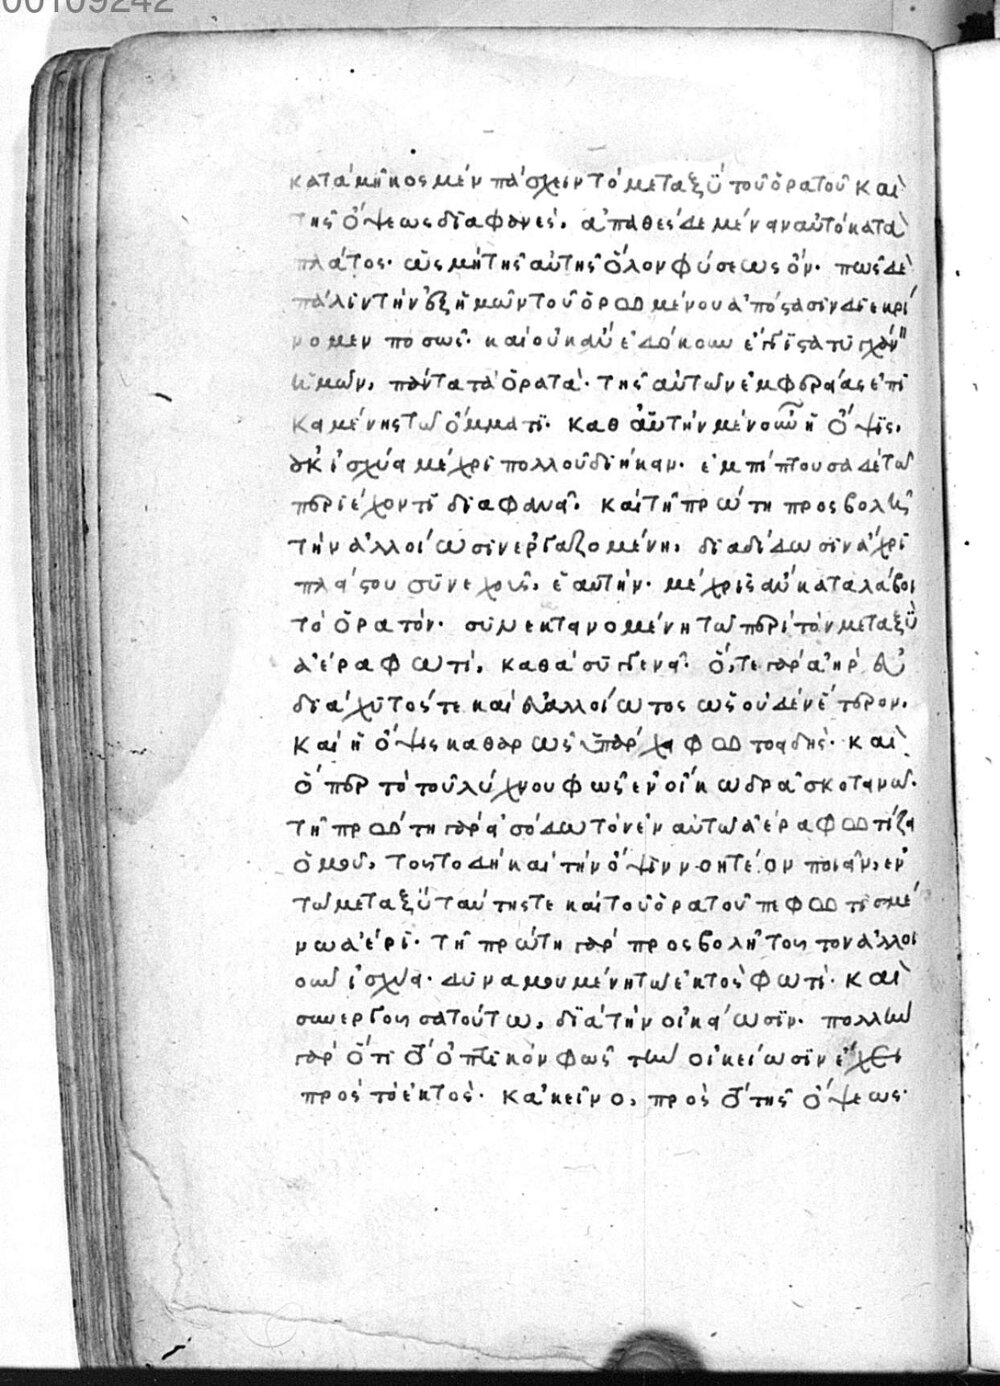 00109242
κατὰ μῆκος μὲν πάσχειν τὸ μεταξὺ τοῦ ὁρατοῦ καὶ
τῆς ὄψεως διαφανές. ἀπαθὲς δὲ μένειν αὐτὸ κατὰ
πλάτος. ὡς μὴ τῆς αὐτῆς ὅλον φύσεως ὄν. πῶς δὲ
πάλιν τὴν ἐξ ἡμῶν τοῦ ὁρωμένου ἀπόστασιν διεκρί
νομεν πόσως. καὶ οὐκ ἂν ἐδόκουν ἐγγίστα τυγχάνειν
ἡμῶν, πάντα τὰ ὁρατά. τῆς αὐτῶν ἐμφερείας ἐπι
καμένης τῷ ὄμματι. καθ αὑτὴν μὲν οὖν ἡ ὄψις,
οὐκ ἰσχύει μέχρι πολλοῦ διήκειν. ἐμπίπτουσα δὲ τῷ
περιέχοντι διαφανεῖ. καὶ τῇ πρώτῃ προσβολῇ
τὴν ἀλλοίωσιν ἐργαζομένη, διαδίδωσιν ἄχρι
πλείστου συνεχοῦς, ἑαυτήν. μέχρις ἂν καταλάβοι
τὸ ὁρατόν. συνεκτεινομένη τῷ περὶ τὸν μεταξὺ
ἀέρα φωτί, καθὰ συγγενεῖ. ὅ, τε γὰρ ἀὴρ εὐ
διάχυτός τε καὶ εὐαλλοίωτος ὡς οὐδὲν ἕτερον.
καὶ ἡ ὄψις καθαρῶς ὑπάρχει φωτοειδής. καὶ
ὅπερ τὸ τοῦ λύχνου φῶς ἐν οἰκωδρα σκοτεινῷ.
τῇ πρώτῃ γὰρ εἰσόδω τὸν ἐν αὐτῷ ἀέρα φωτίζει
ὁμοῦ, τοῦτο δὴ καὶ τὴν ὄψιν νοητέον ποιεῖν, ἐν
τῷ μεταξὺ ταύτης τε καὶ τοῦ ὁρατοῦ πεφωτισμέ
νω ἀέρι. τῇ πρώτη γὰρ προσβολῇ τοῦτον ἀλλοι
οῦν ἰσχύει. δυναμουμένη τῷ ἐκτὸς φωτί. καὶ
συνεργοῦσα τούτω, διὰ τὴν οἰκείωσιν. πολλὴν
γὰρ ὅτι τὸ ὀπτικὸν φῶς τὴν οἰκείωσιν ἔχει
πρὸς τὸ ἐκτός. κἀκεῖνο, πρὸς τὸ τῆς ὄψεως.